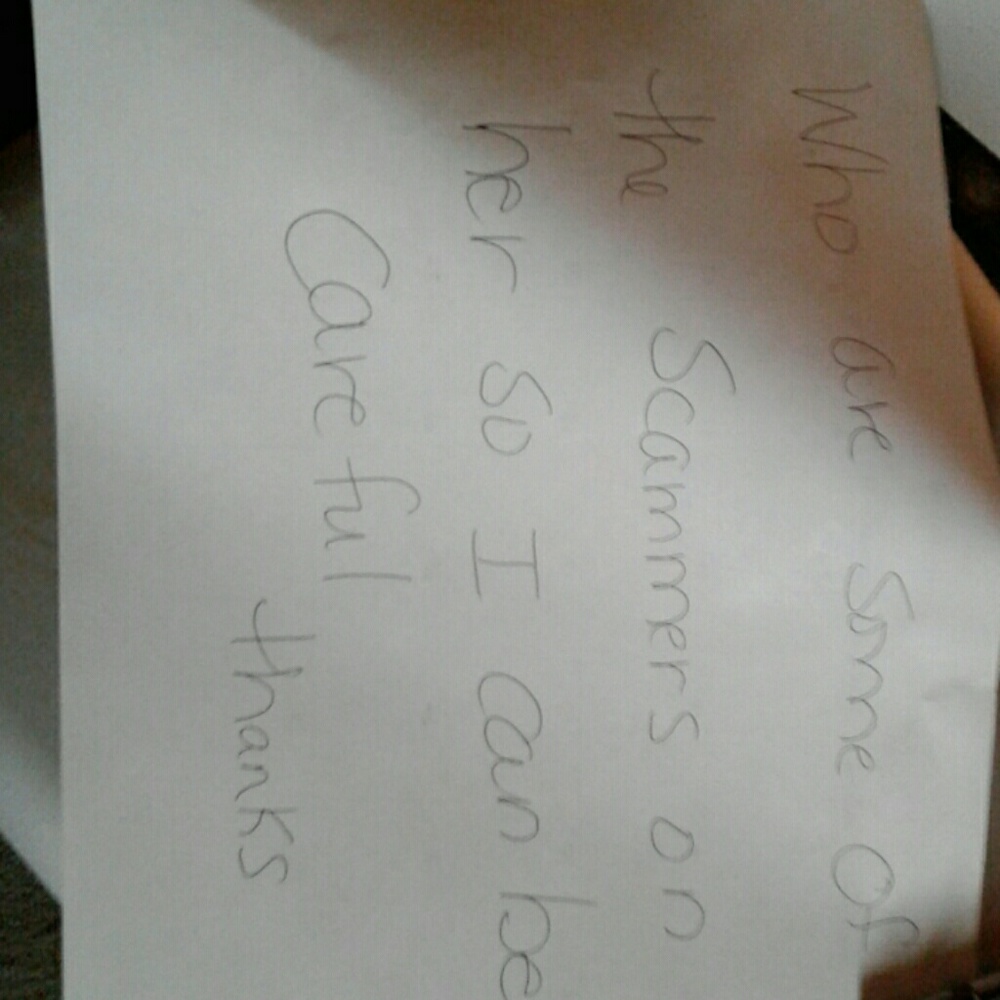 Who are Some Of
the Scammers on
her so I can be
Careful
thanks